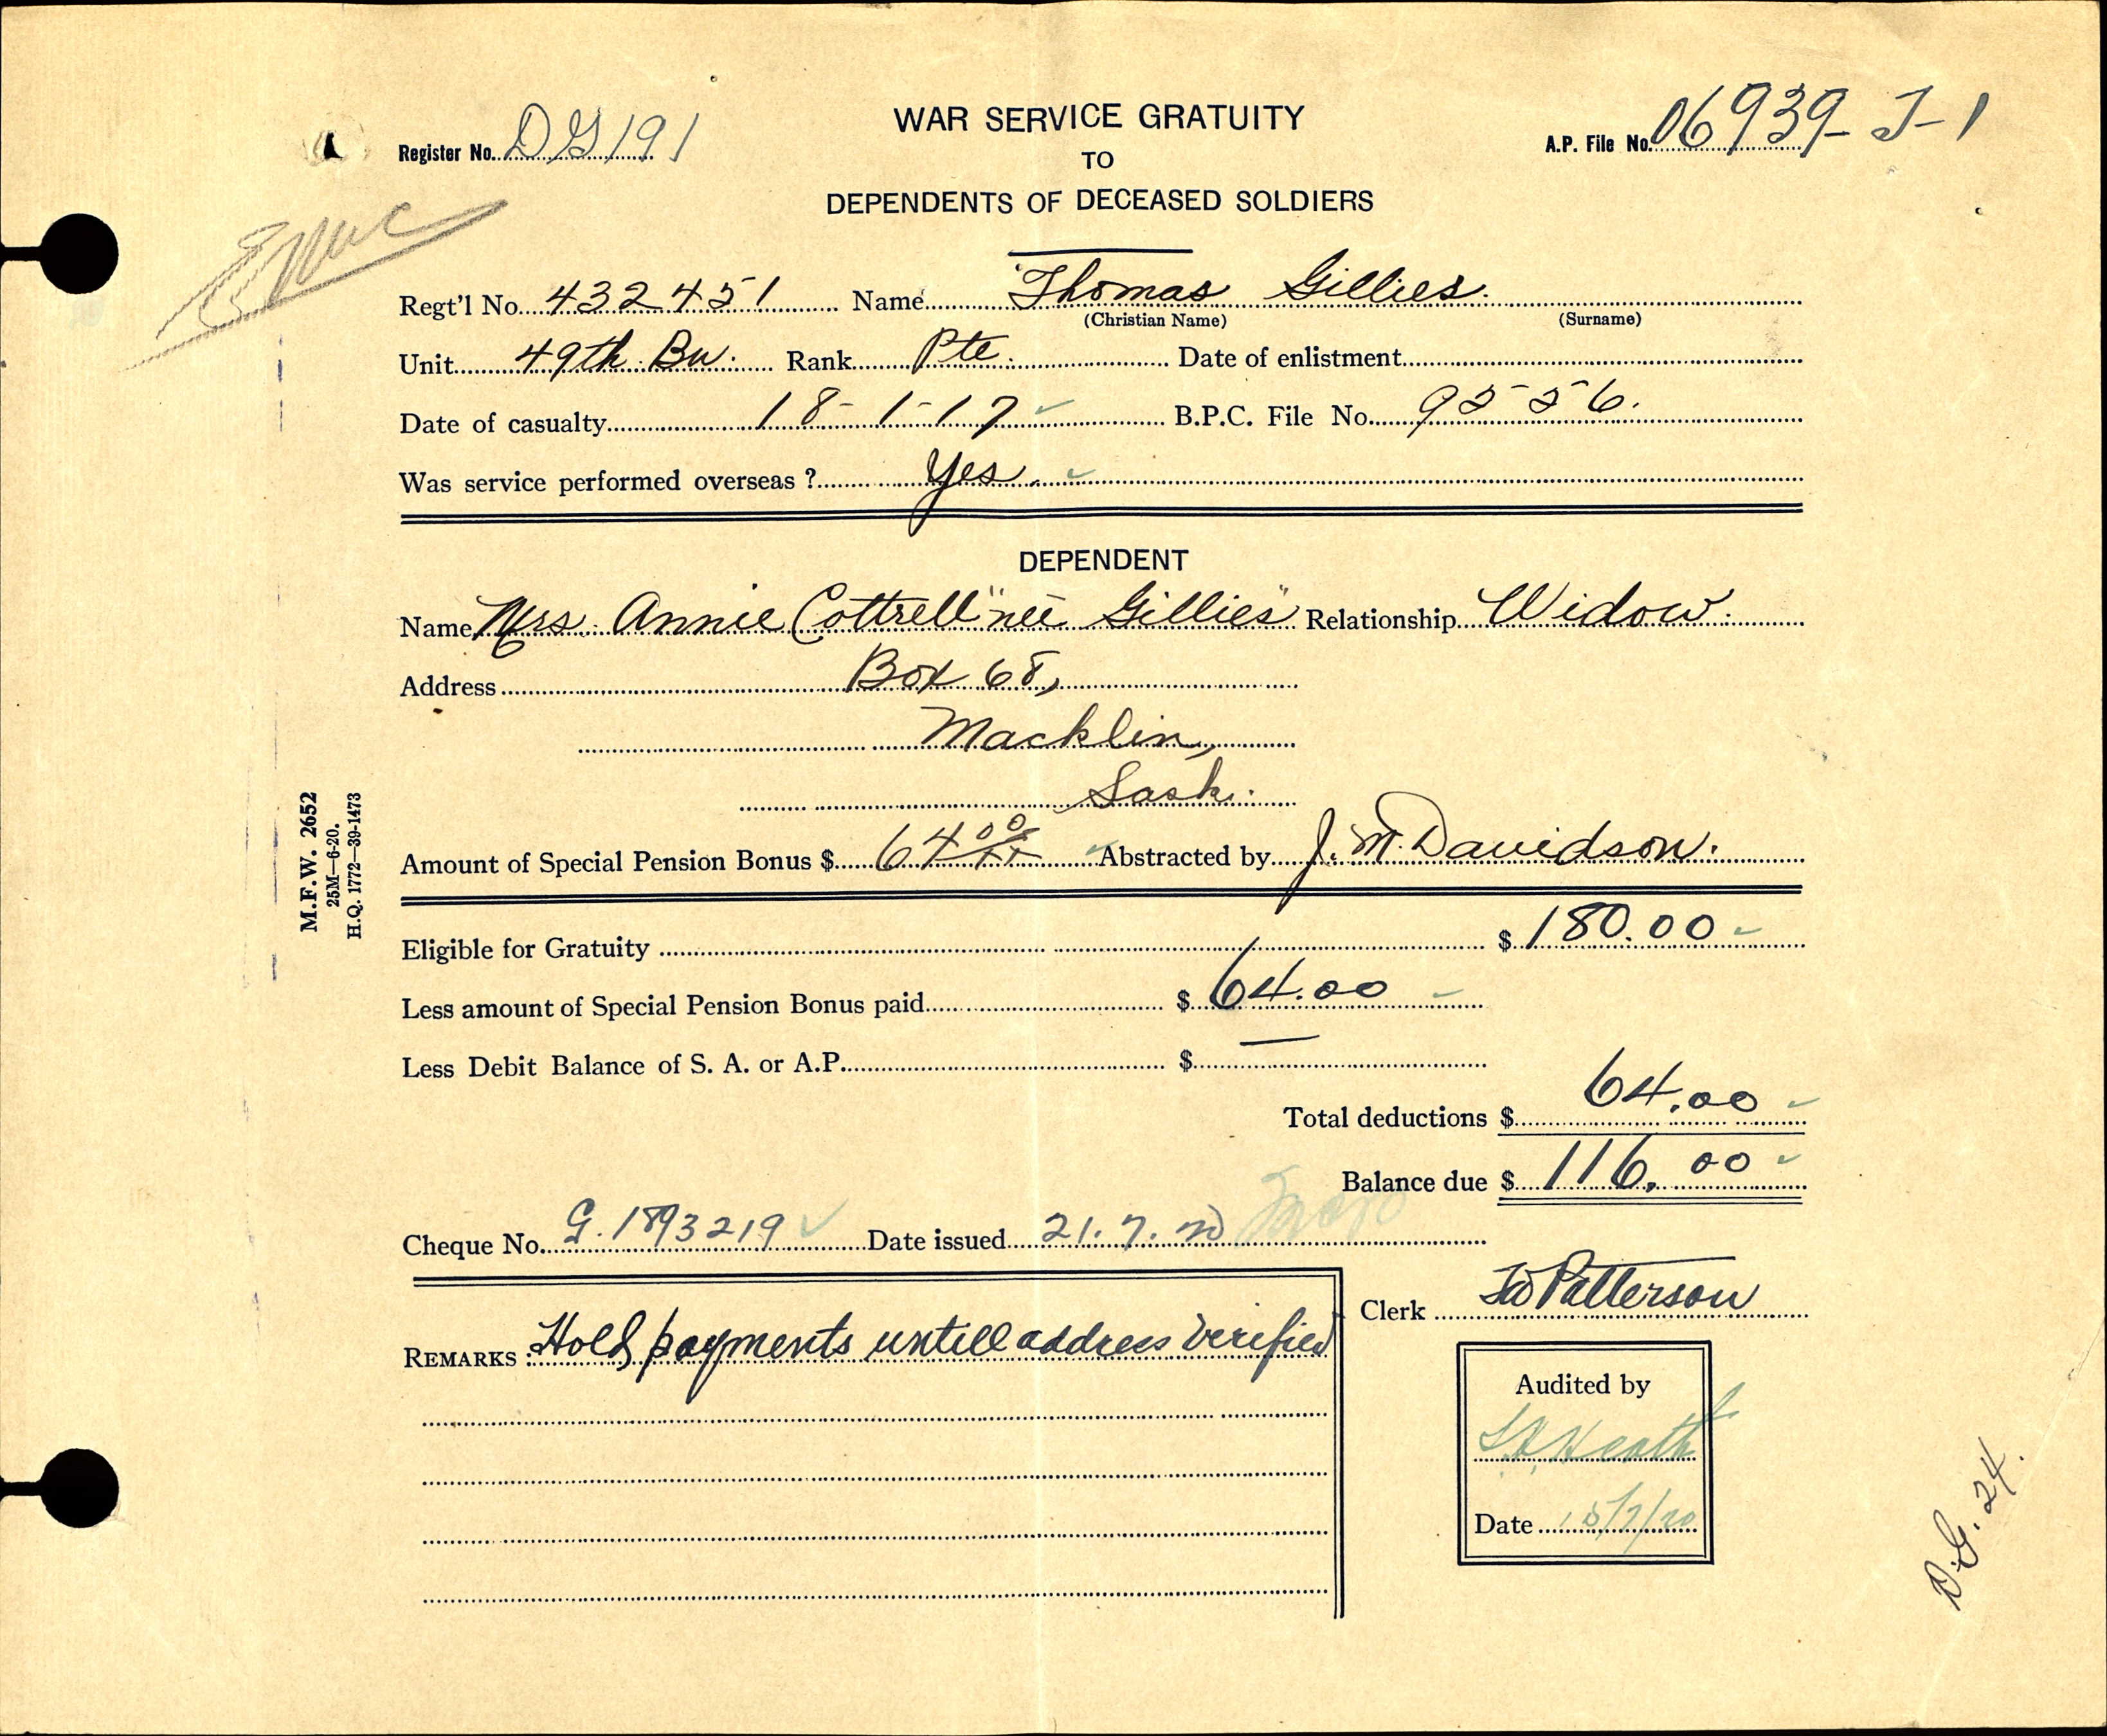 WAR SERVICE GRATUITY
TO
DEPENDENTS OF DECEASED SOLDIERS
Register No. DG191
A.P. File No. 06939-J-1
Regt'l No. 432451 Name Thomas Gillies.
(Christian Name) (Surname)
Unit 49th Bn. Rank Pte. Date of enlistment
Date of casualty 18-1-17 B.P.C. File No. 9556.
Was service performed overseas? Yes.
DEPENDENT
Name Mrs. Annie Cottrell "neé Gillies" Relationship Widow.
Address Box 68,
Macklin,
Sask.
Amount of Special Pension Bonus $ 64 00/xx Abstracted by J. M. Davidson.
M.F.W. 2652
25M—6-20.
H.Q. 1772—39-1473
Eligible for Gratuity $ 180.00
Less amount of Special Pension Bonus paid $ 64.00
Less Debit Balance of S. A. or A.P. $ —
Total deductions $ 64.00
Balance due $ 116.00
Cheque No. G. 1893219 Date issued 21.7.20
Clerk Patterson
REMARKS: Hold payments untill address verified
Audited by
Heath
Date 15/7/20
D.G. 24.